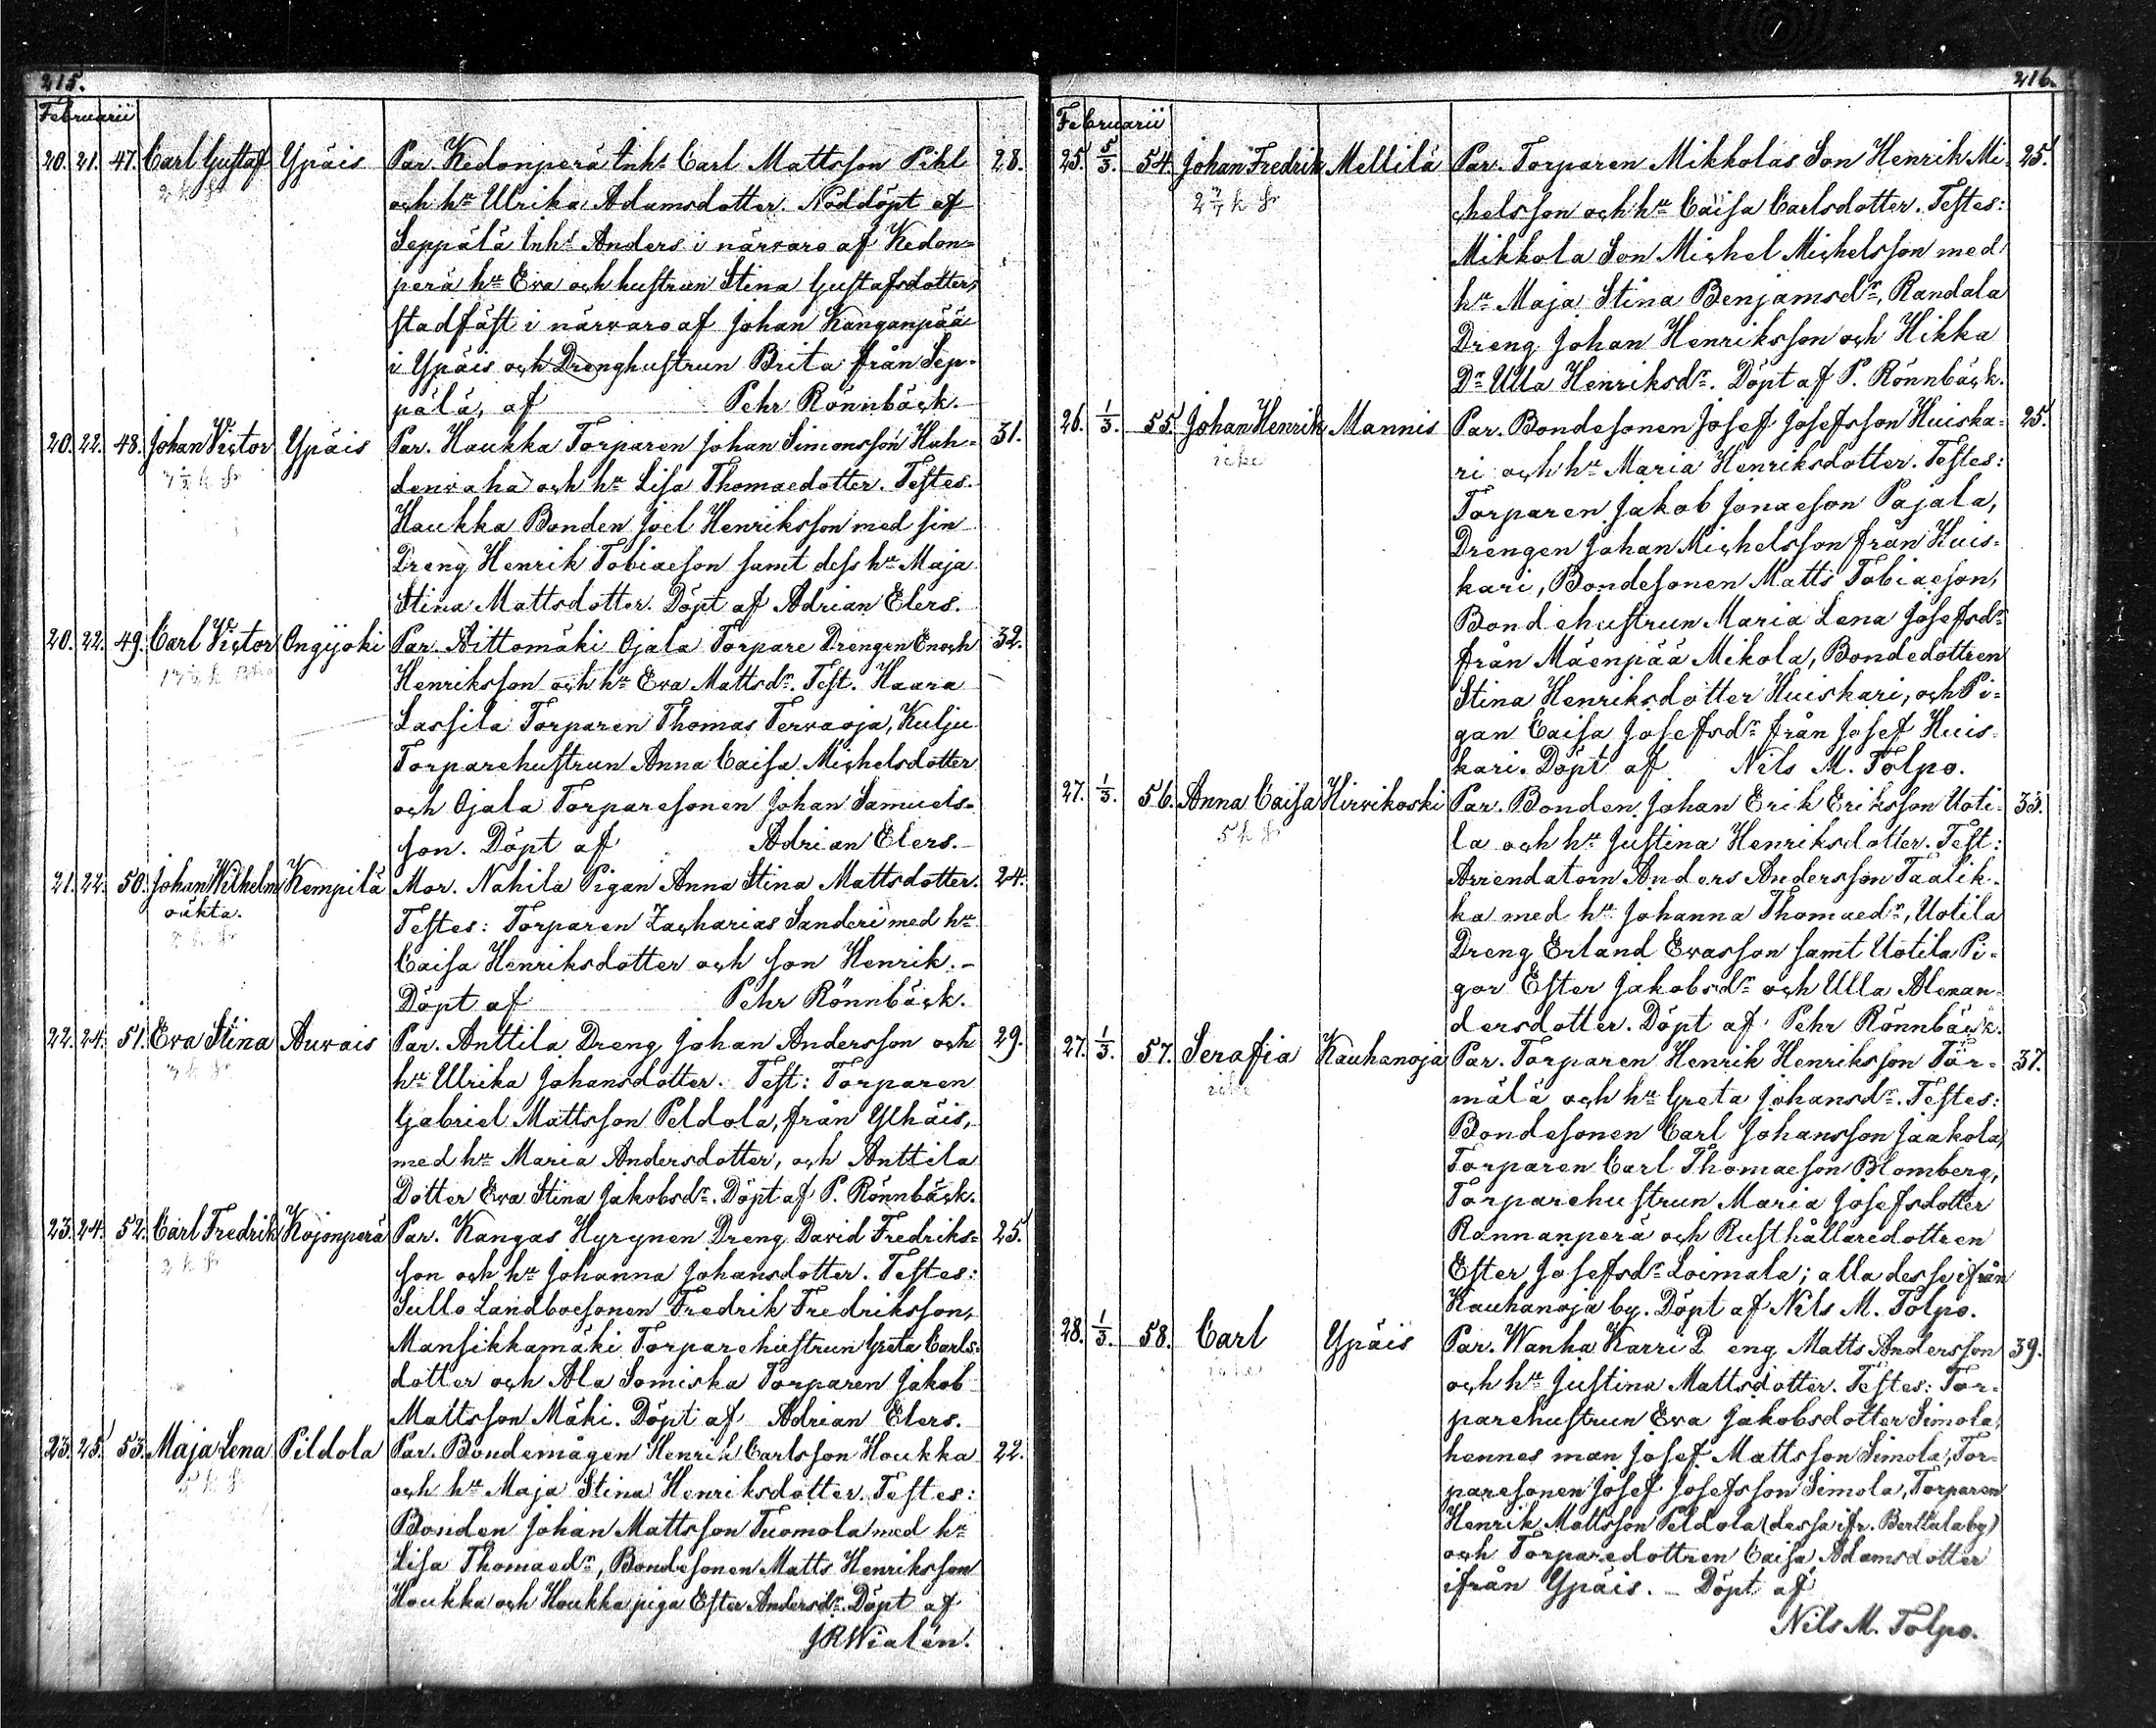 215.
Februarii
20. 21. 47. Carl Gustaf Ypäis Par. Kedonperä Inh: Carl Mattsson Pihl 28.
och hu Ulrika Adamsdotter. Nöddöpt af
Seppälä Inhs Anders i närvaro af Kedon=
perä hu Eva och hustrun Stina Gustafsdotter,
stadfäst i närvaro af Johan Kanganpää
i Ypäis och Drenghustrun Brita från Sep-
pälä, af Pehr Rönnbäck.
20. 22. 48. Johan Victor Ypäis Par. Haukka Torparen Johan Simonsson Hah= 31.
denvaha och hu Lisa Thomaedotter. Testes.
Haukka Bonden Joel Henriksson med sin
Dreng Henrik Tobiaeson samt dess hu Maja
Stina Mattsdotter. Döpt af Adrian Elers.
20. 22. 49. Carl Victor Ongijoki Par. Aittomäki Ojala Torpare Drengen Enoch 32.
Henriksson och hu Eva Mattsdr. Test. Haara
Lassila Torparen Thomas Tervaoja, Kulju
Torparehustrun Anna Caisa Michelsdotter
och Ojala Torparesonen Johan Samuels=
son. Döpt af Adrian Elers.
21. 22. 50. Johan Wilhelm Kempilä Mor. Nahila Pigan Anna Stina Mattsdotter. 24.
oäkta. Testes: Torparen Zacharias Sanderi med hu
Caisa Henriksdotter och son Henrik.
Döpt af Pehr Rönnbäck.
22. 24. 51. Eva Stina Auvais Par. Anttila Dreng Johan Andersson och 29.
hu Ulrika Johansdotter. Test: Torparen
Gabriel Mattsson Peldola, från Ylhäis,
med hu Maria Andersdotter, och Anttila
Dotter Eva Stina Jakobsdr. Döpt af P. Rönnbäck.
23. 24. 52. Carl Fredrik Kojonperä Par. Kangas Hyrynen Dreng David Fredriks= 25.
son och hu Johanna Johansdotter. Testes:
Sullo Landboesonen Fredrik Fredriksson,
Mansikkamäki Torparehustrun Greta Carls=
dotter och Ala Somiska Torparen Jakob
Mattsson Mäki. Döpt af Adrian Elers.
23. 25. 53. Maja Lena Pildola Par. Bondemågen Henrik Carlsson Houkka 22.
och hu Maja Stina Henriksdotter. Testes:
Bonden Johan Mattsson Tuomola med hu
Lisa Thomaedr, Bondesonen Matts Henriksson
Houkka och Houkka piga Ester Andersdr. Döpt af
J R Wialén.
216.
Februarii
25. 5/3. 54. Johan Fredrik Mellilä Par. Torparen Mikkolas Son Henrik Mi= 25.
chelsson och hu Caisa Carlsdotter. Testes:
Mikkola Son Michel Michelsson med
hu Maja Stina Benjamsdr, Randala
Dreng Johan Henriksson och Hikka
Dr Ulla Henriksdr. Döpt af P. Rönnbäck.
26. 1/3. 55. Johan Henrik Mannis Par. Bondesonen Josef Josefsson Huiska= 25.
ri och hu Maria Henriksdotter. Testes:
Torparen Jakob Jonaeson Pajala,
Drengen Johan Michelsson från Huis=
kari, Bondesonen Matts Tobiaeson,
Bondehustrun Maria Lena Josefsdr
från Mäenpää Mikola, Bondedottren
Stina Henriksdotter Huiskari, och Pi=
gan Caisa Josefsdr från Josef Huis=
kari. Döpt af Nils M. Tolpo.
27. 1/3. 56. Anna Caisa Hirvikoski Par. Bonden Johan Erik Eriksson Uoti= 33.
la och hu Justina Henriksdotter. Test:
Arrendatorn Anders Andersson Taalik=
ka med hu Johanna Thomaedr, Uotila
Dreng Erland Evasson samt Uotila Pi=
gor Ester Jakobsdr och Ulla Alexan=
dersdotter. Döpt af Pehr Rönnbäck.
27. 1/3. 57. Serafia Kauhanoja Par. Torparen Henrik Henriksson Tör= 37.
mälä och hu Greta Johansdr. Testes:
Bondesonen Carl Johansson Jaakola,
Torparen Carl Thomaeson Blomberg,
Torparehustrun Maria Josefsdotter
Rannanperä och Rusthållaredottren
Ester Josefsdr Loimala; alla desse ifrån
Kauhanoja by. Döpt af Nils M. Tolpo.
28. 1/3. 58. Carl Ypäis Par. Wanha Karri D eng Matts Andersson 39.
och hu Justina Mattsdotter. Testes: Tor=
parehustrun Eva Jakobsdotter Simola,
hennes man Josef Mattsson Simola, Tor=
paresonen Josef Josefsson Simola, Torparen
Henrik Mattsson Peldola (dessa ifr. Berttula by)
och Torparedottren Caisa Adamsdotter
ifrån Ypäis. Döpt af
Nils M. Tolpo.